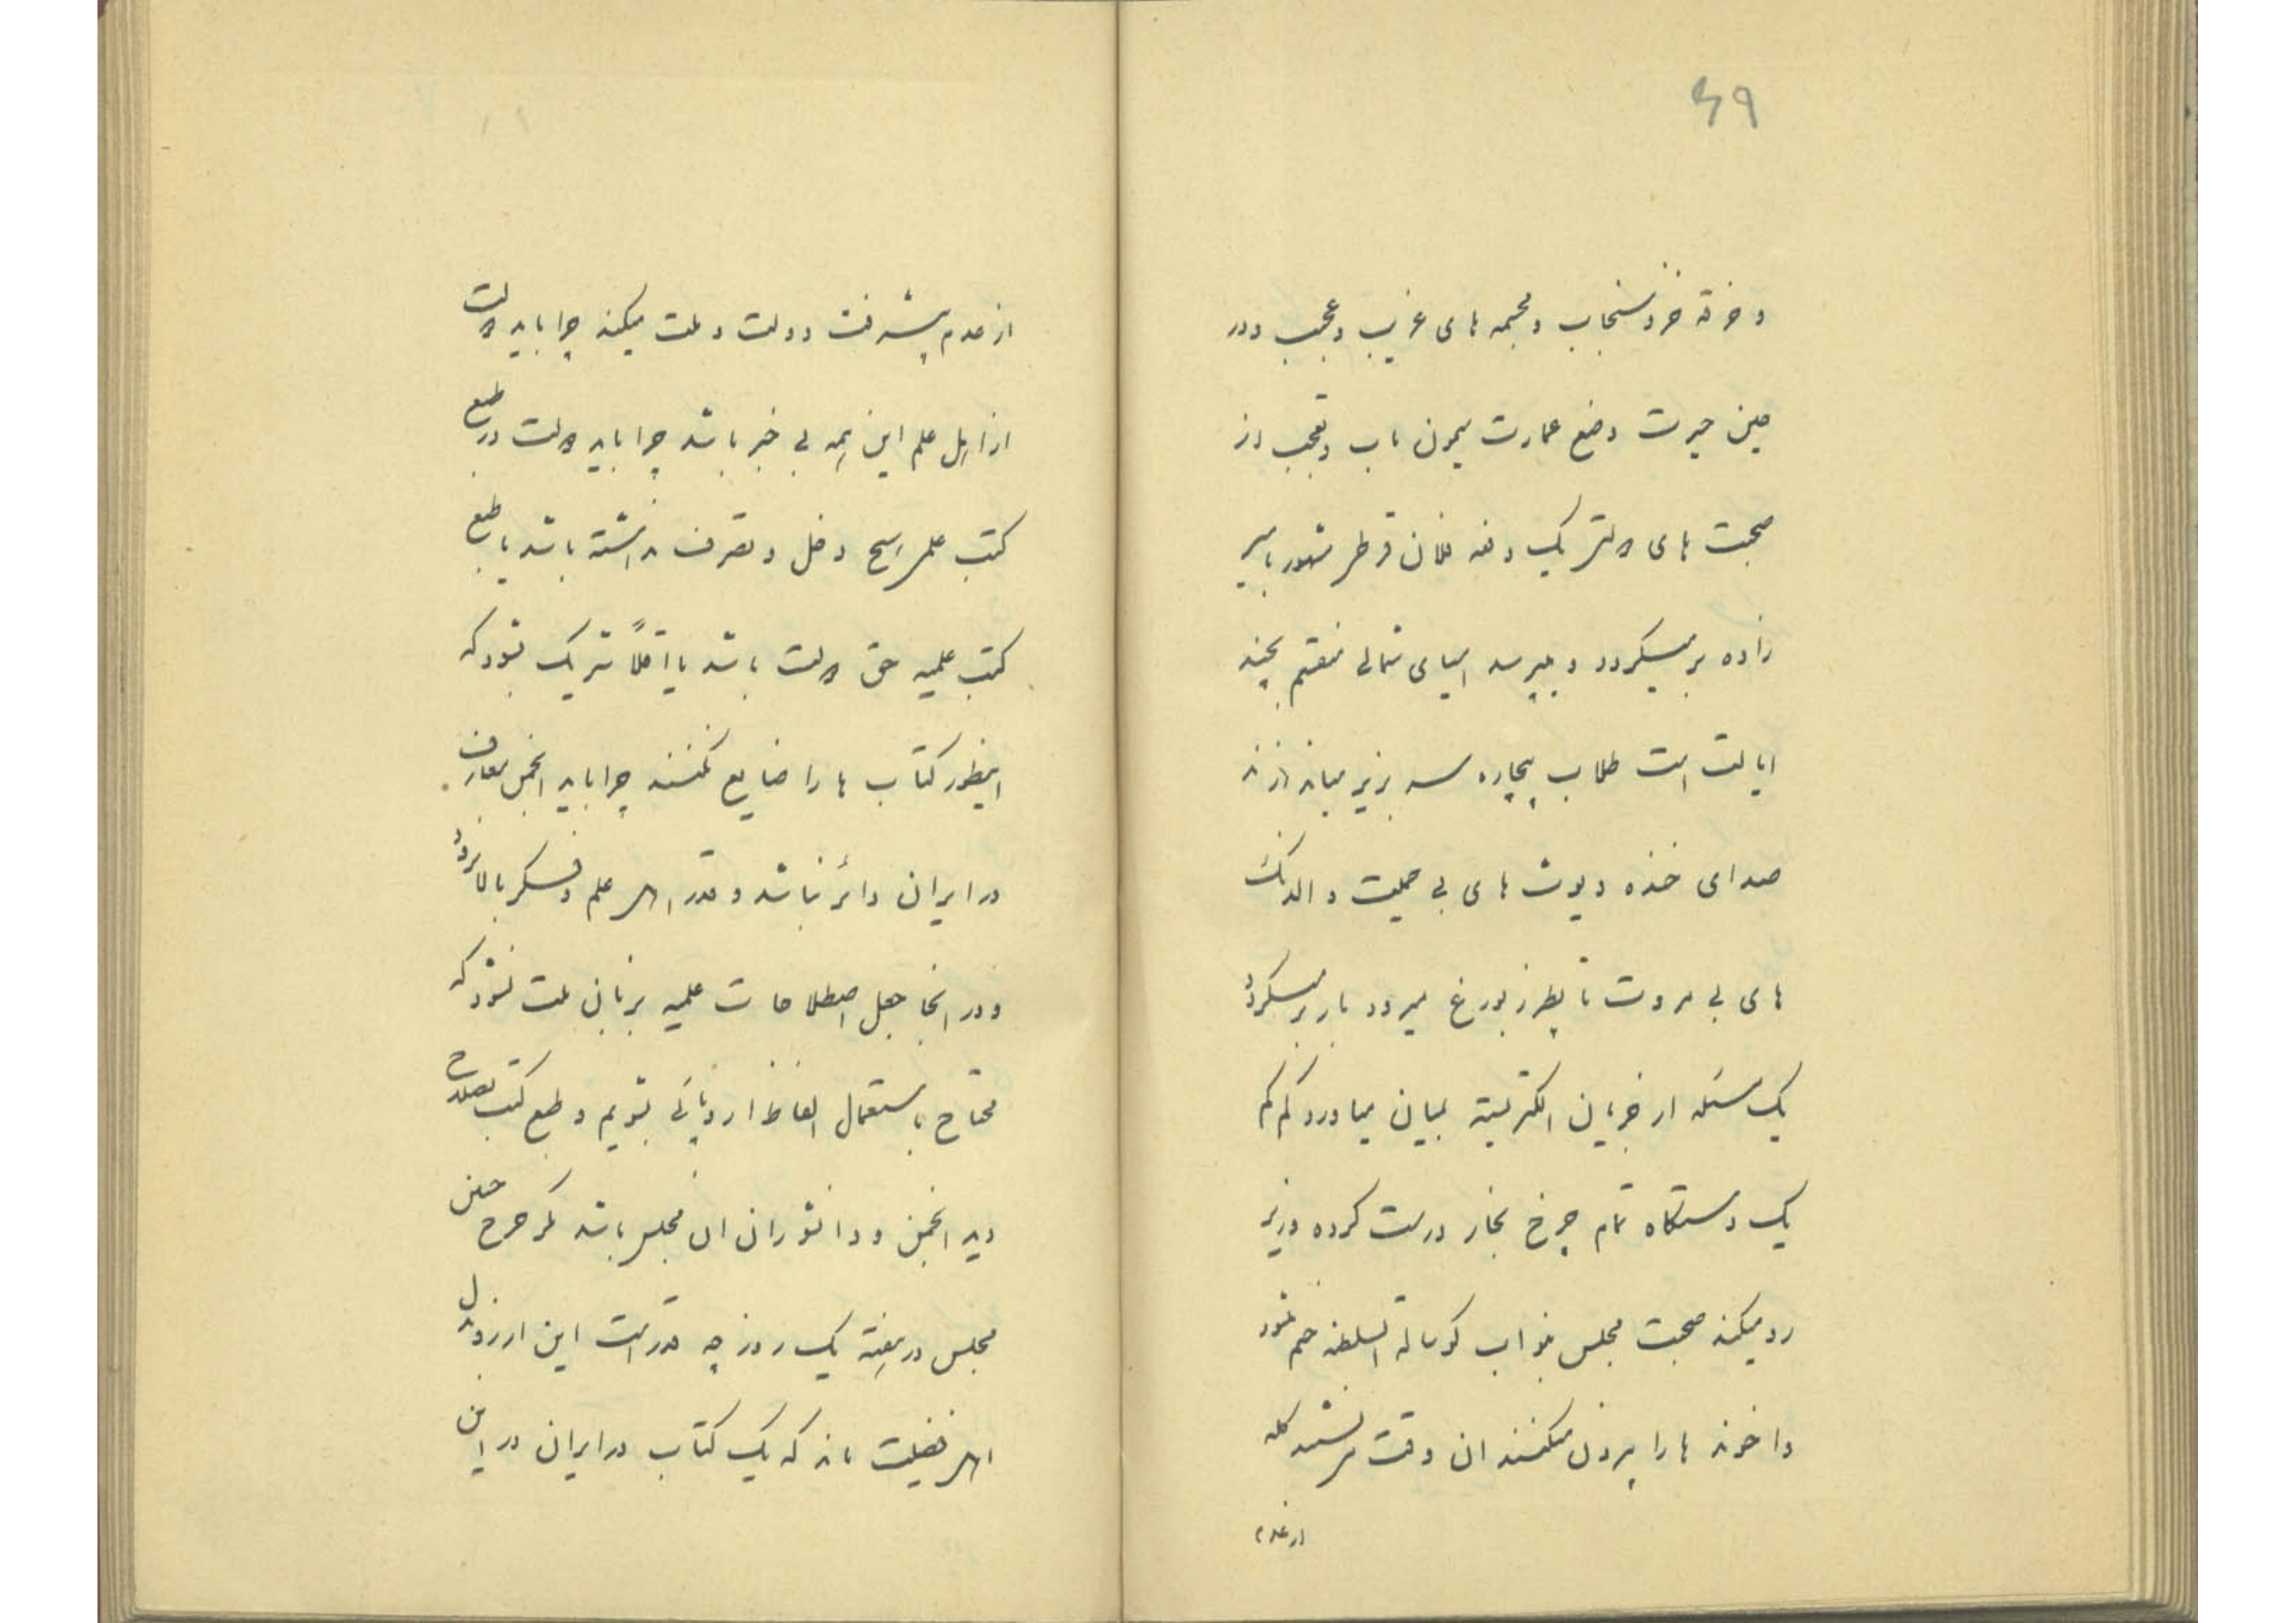 ۴۹
و خرقه خز و سنجاب و مجسمه های غریب و عجیب و در
حین حیرت وضع عمارت میمون باب و تعجب از
صحبت های دکتر یک دفعه فلان قرطر مشهور باسیر
زاده بر میگردد و میپرسد آسیای شمالی منقسم بچند
ایالت است طلاب بیچاره سر بزیر میاندازند
صدای خنده دیوث های بی حمیت و الدنگ
های بی مروت تا پطرزبورغ میرود باز بر میگردد
یک مسئله از جریان الکتریسته بمیان میاورد کم کم
یک دستگاه تمام چرخ بخار درست کرده وزیر
رو میکند صحبت مجلس بنواب گوساله السلطنه ختم شود
و اخوند ها را بیرون میکنند ان وقت مینشینند گله
از عدم
از عدم پیشرفت دولت و ملت میکنند چرا باید دولت
از اهل علم این همه بی خبر باشد چرا باید دولت در طبع
کتب علمی هیچ دخل و تصرف نداشته باشد یا طبع
کتب علمیه حق دولت باشد یا اقلاً شریک بشود که
اینطور کتاب ها را ضایع نکنند چرا باید انجمن معارف
در ایران دائر نباشد و قدر اهل علم و فکر بالا نرود
و در انجا جعل اصطلاحات علمیه بزبان ملت نشود که
محتاج باستعمال الفاظ اروپائی بشویم و طبع کتب بصلاح
دید انجمن و دانشوران ان مجلس باشد مگر خرج چنین
مجلس در هفته یک روز چه قدر است این ارزو بدل
اهل فضیلت ماند که یک کتاب در ایران در این